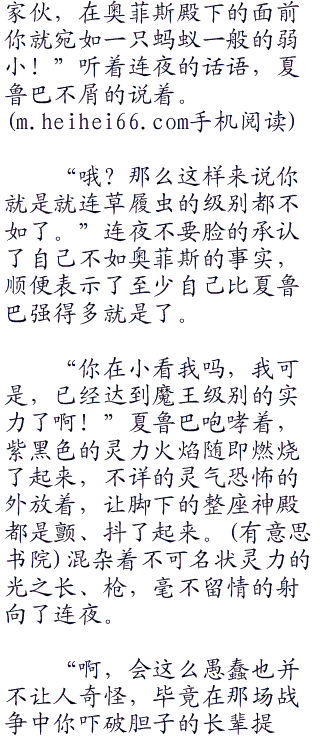 家伙，在奥菲斯殿下的面前
你就宛如一只蚂蚁一般的弱
小！”听着连夜的话语，夏
鲁巴不屑的说着。
(m.heihei66.com手机阅读)
“哦？那么这样来说你
就是就连草履虫的级别都不
如了。”连夜不要脸的承认
了自己不如奥菲斯的事实，
顺便表示了至少自己比夏鲁
巴强得多就是了。
“你在小看我吗，我可
是，已经达到魔王级别的实
力了啊！”夏鲁巴咆哮着，
紫黑色的灵力火焰随即燃烧
了起来，不详的灵气恐怖的
外放着，让脚下的整座神殿
都是颤、抖了起来。(有意思
书院)混杂着不可名状灵力的
光之长、枪，毫不留情的射
向了连夜。
“啊，会这么愚蠢也并
不让人奇怪，毕竟在那场战
争中你吓破胆子的长辈提